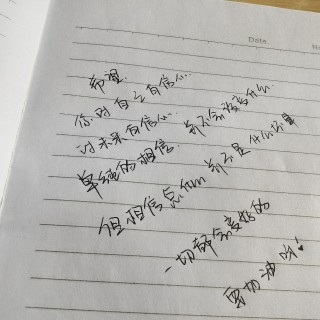 Date.
No
希望
你对自己有信心..
对未来有信心..
单纯的相信 并不会改变什么.
但相信点什么 并不是什么坏事
一切都会变好的
要加油呀!